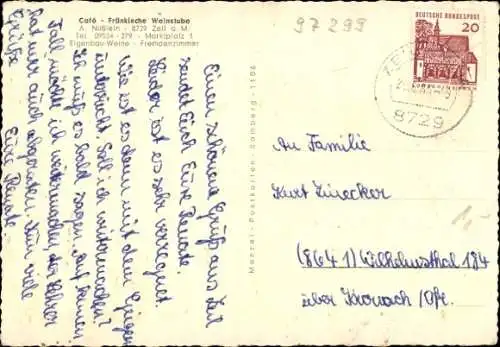 Café - Fränkische Weinstube
A. Nüßlein - 8729 Zeil a. M.
Tel. 09524 - 279 - Marktplatz 1
Eigenbau-Weine - Fremdenzimmer
97 299
DEUTSCHE BUNDESPOST
20
8729
Einen schönen Gruß aus Zeil
sendet Euch Eure Renate.
Leider ist es sehr verregnet.
Wie ist es denn mit dem Geigen
unterricht. Soll ich weitermachen?
Ich muß es bald sagen. Auf keinen
Fall möchte ich weitermachen der Lehrer
hat mir auch abgeraten. Nun viele
Grüße
Eure Renate
Menzel-Postkarten - Bamberg - 1106
An Familie
Kurt Zinecker
(8641) Wilhelmsthal 184
über Kronach / Ofr.
1,-